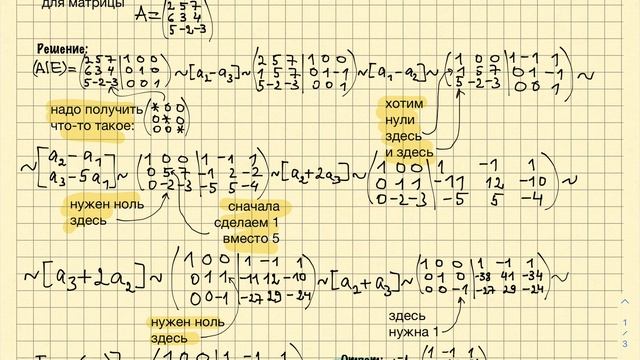 для матрицы A = (2 5 7
6 3 4
5 -2 -3)
Решение:
(A|E) = (2 5 7 | 1 0 0
6 3 4 | 0 1 0
5 -2 -3 | 0 0 1) ~ [a₂ - a₃] ~ (2 5 7 | 1 0 0
1 5 7 | 0 1 -1
5 -2 -3 | 0 0 1) ~ [a₁ - a₂] ~ (1 0 0 | 1 -1 1
1 5 7 | 0 1 -1
5 -2 -3 | 0 0 1) ~
надо получить
что-то такое:
(* 0 0
0 * 0
0 0 *)
хотим
нули
здесь
и здесь
~ [a₂ - a₁
a₃ - 5a₁] ~ (1 0 0 | 1 -1 1
0 5 7 | -1 2 -2
0 -2 -3 | -5 5 -4) ~ [a₂ + 2a₃] ~ (1 0 0 | 1 -1 1
0 1 1 | -11 12 -10
0 -2 -3 | -5 5 -4) ~
нужен ноль
здесь
сначала
сделаем 1
вместо 5
~ [a₃ + 2a₂] ~ (1 0 0 | 1 -1 1
0 1 1 | -11 12 -10
0 0 -1 | -27 29 -24) ~ [a₂ + a₃] ~ (1 0 0 | 1 -1 1
0 1 0 | -38 41 -34
0 0 -1 | -27 29 -24) ~
нужен ноль
здесь
здесь
нужна 1
(1 0 0 | 1 -1 1
Ответ:
(1 -1 1
1
/
3